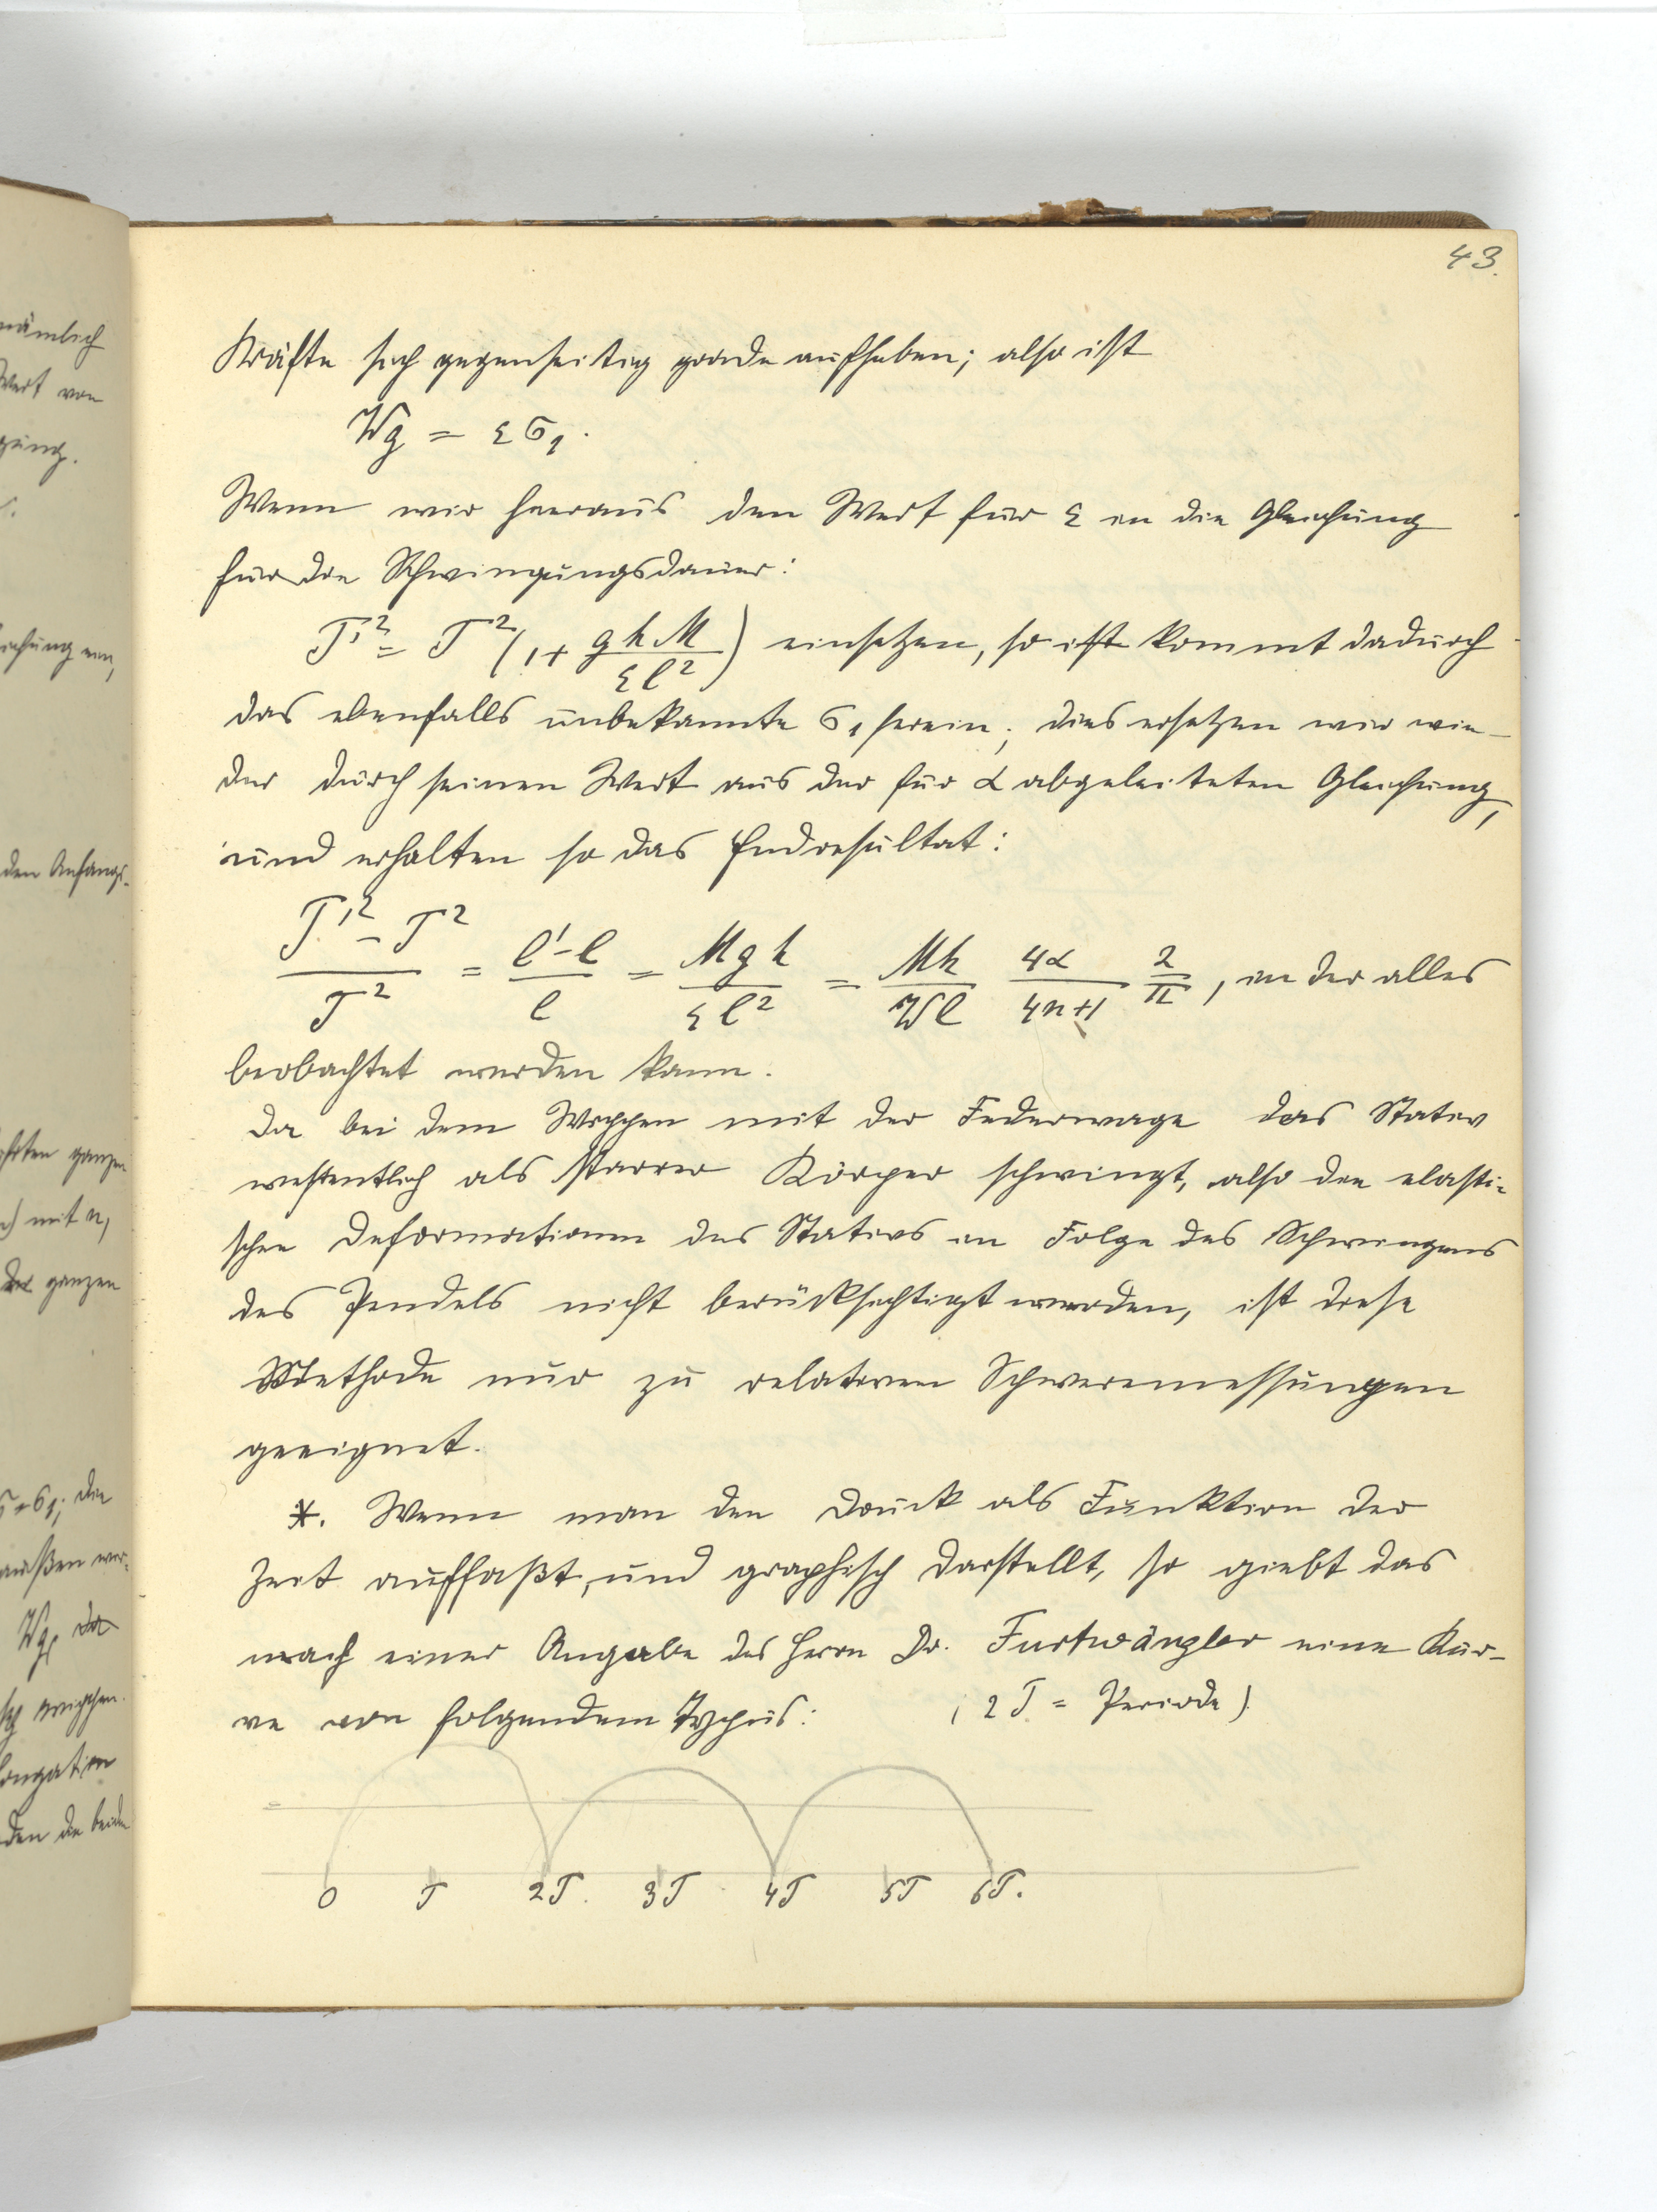 43.
Kräfte sich gegenseitig grade aufheben; also ist
Wg = εσ₁.
Wenn wir hieraus den Wert für ε in die Gleichung
für die Schwingungsdauer:
T'² = T² (1 + ghM / εl²) einsetzen, so ist kommt dadurch
das ebenfalls unbekannte σ₁ herein; dies ersetzen wir wie-
der durch seinen Wert aus der für α abgeleiteten Gleichung,
und erhalten so das Endresultat:
(T'² - T²) / T² = (l' - l) / l = Mgh / εl² = Mh / Wl 4α / 4n+1 2 / π, in der alles
beobachtet werden kann.
Da bei dem Wippen mit der Federwage das Stativ
wesentlich als starrer Körper schwingt, also die elasti-
schen Deformationen des Stativs in Folge des Schwingens
des Pendels nicht berücksichtigt werden, ist diese
Methode nur zu relativen Schweremessungen
geeignet.
*. Wenn man den Druck als Funktion der
Zeit auffaßt, und graphisch darstellt, so giebt das
nach einer Angabe des Herrn Dr. Furtwängler eine Kur-
ve von folgendem Typus: (2T = Periode)
0 T 2T 3T 4T 5T 6T.
nämlich
Wert von
den Anfangs-
ganzen
mit n,
der ganzen
σ₁; die
Wg, da
wippen
den die beiden